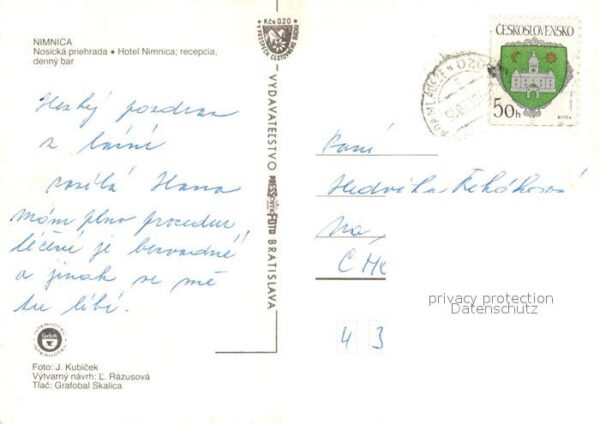 NIMNICA
Nosická priehrada • Hotel Nimnica; recepcia,
denný bar
Kčs 0,20
V PROSPECH CESTOVNÉHO RUCHU
Hezký pozdrav
z lázní
zasílá Hana
mám plno procedur,
léčení je bezvadné
a jinak se mě
tu líbí.
VYDAVATEĽSTVO
PRESS
FOTO
BRATISLAVA
ČESKOSLOVENSKO
50h
BYTČA
Paní
Hedvika Řeháková
Na
4 3
privacy protection
Datenschutz
INTERHOTEL
Čedok
INTERHOTEL
Foto: J. Kubíček
Výtvarný návrh: Ľ. Rázusová
Tlač: Grafobal Skalica